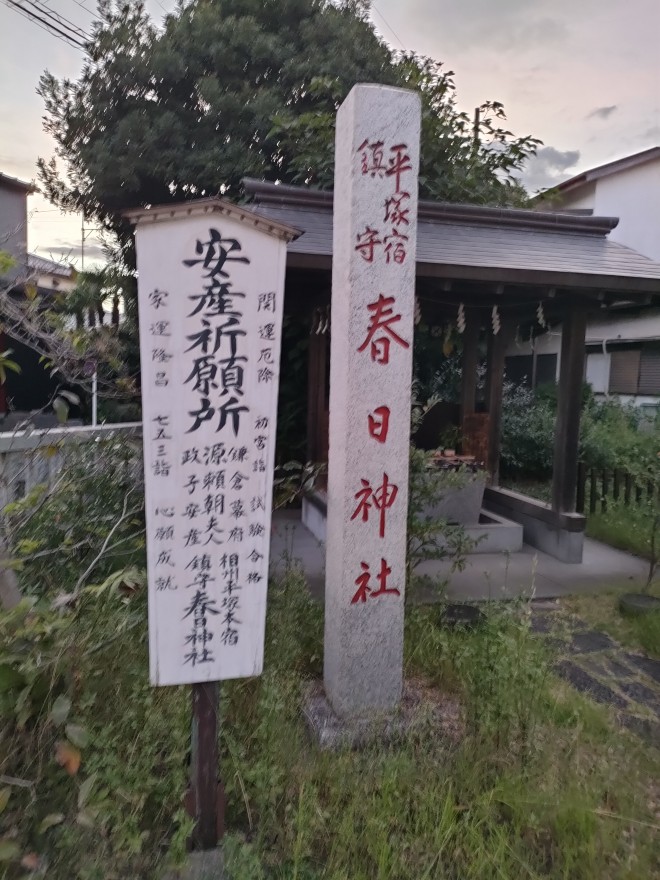 安産祈願所
開運厄除 初宮詣 試験合格
鎌倉幕府 相州平塚本宿
源頼朝夫人
政子安産 鎮守春日神社
家運隆昌 七五三詣 心願成就
平塚宿
鎮守
春日神社